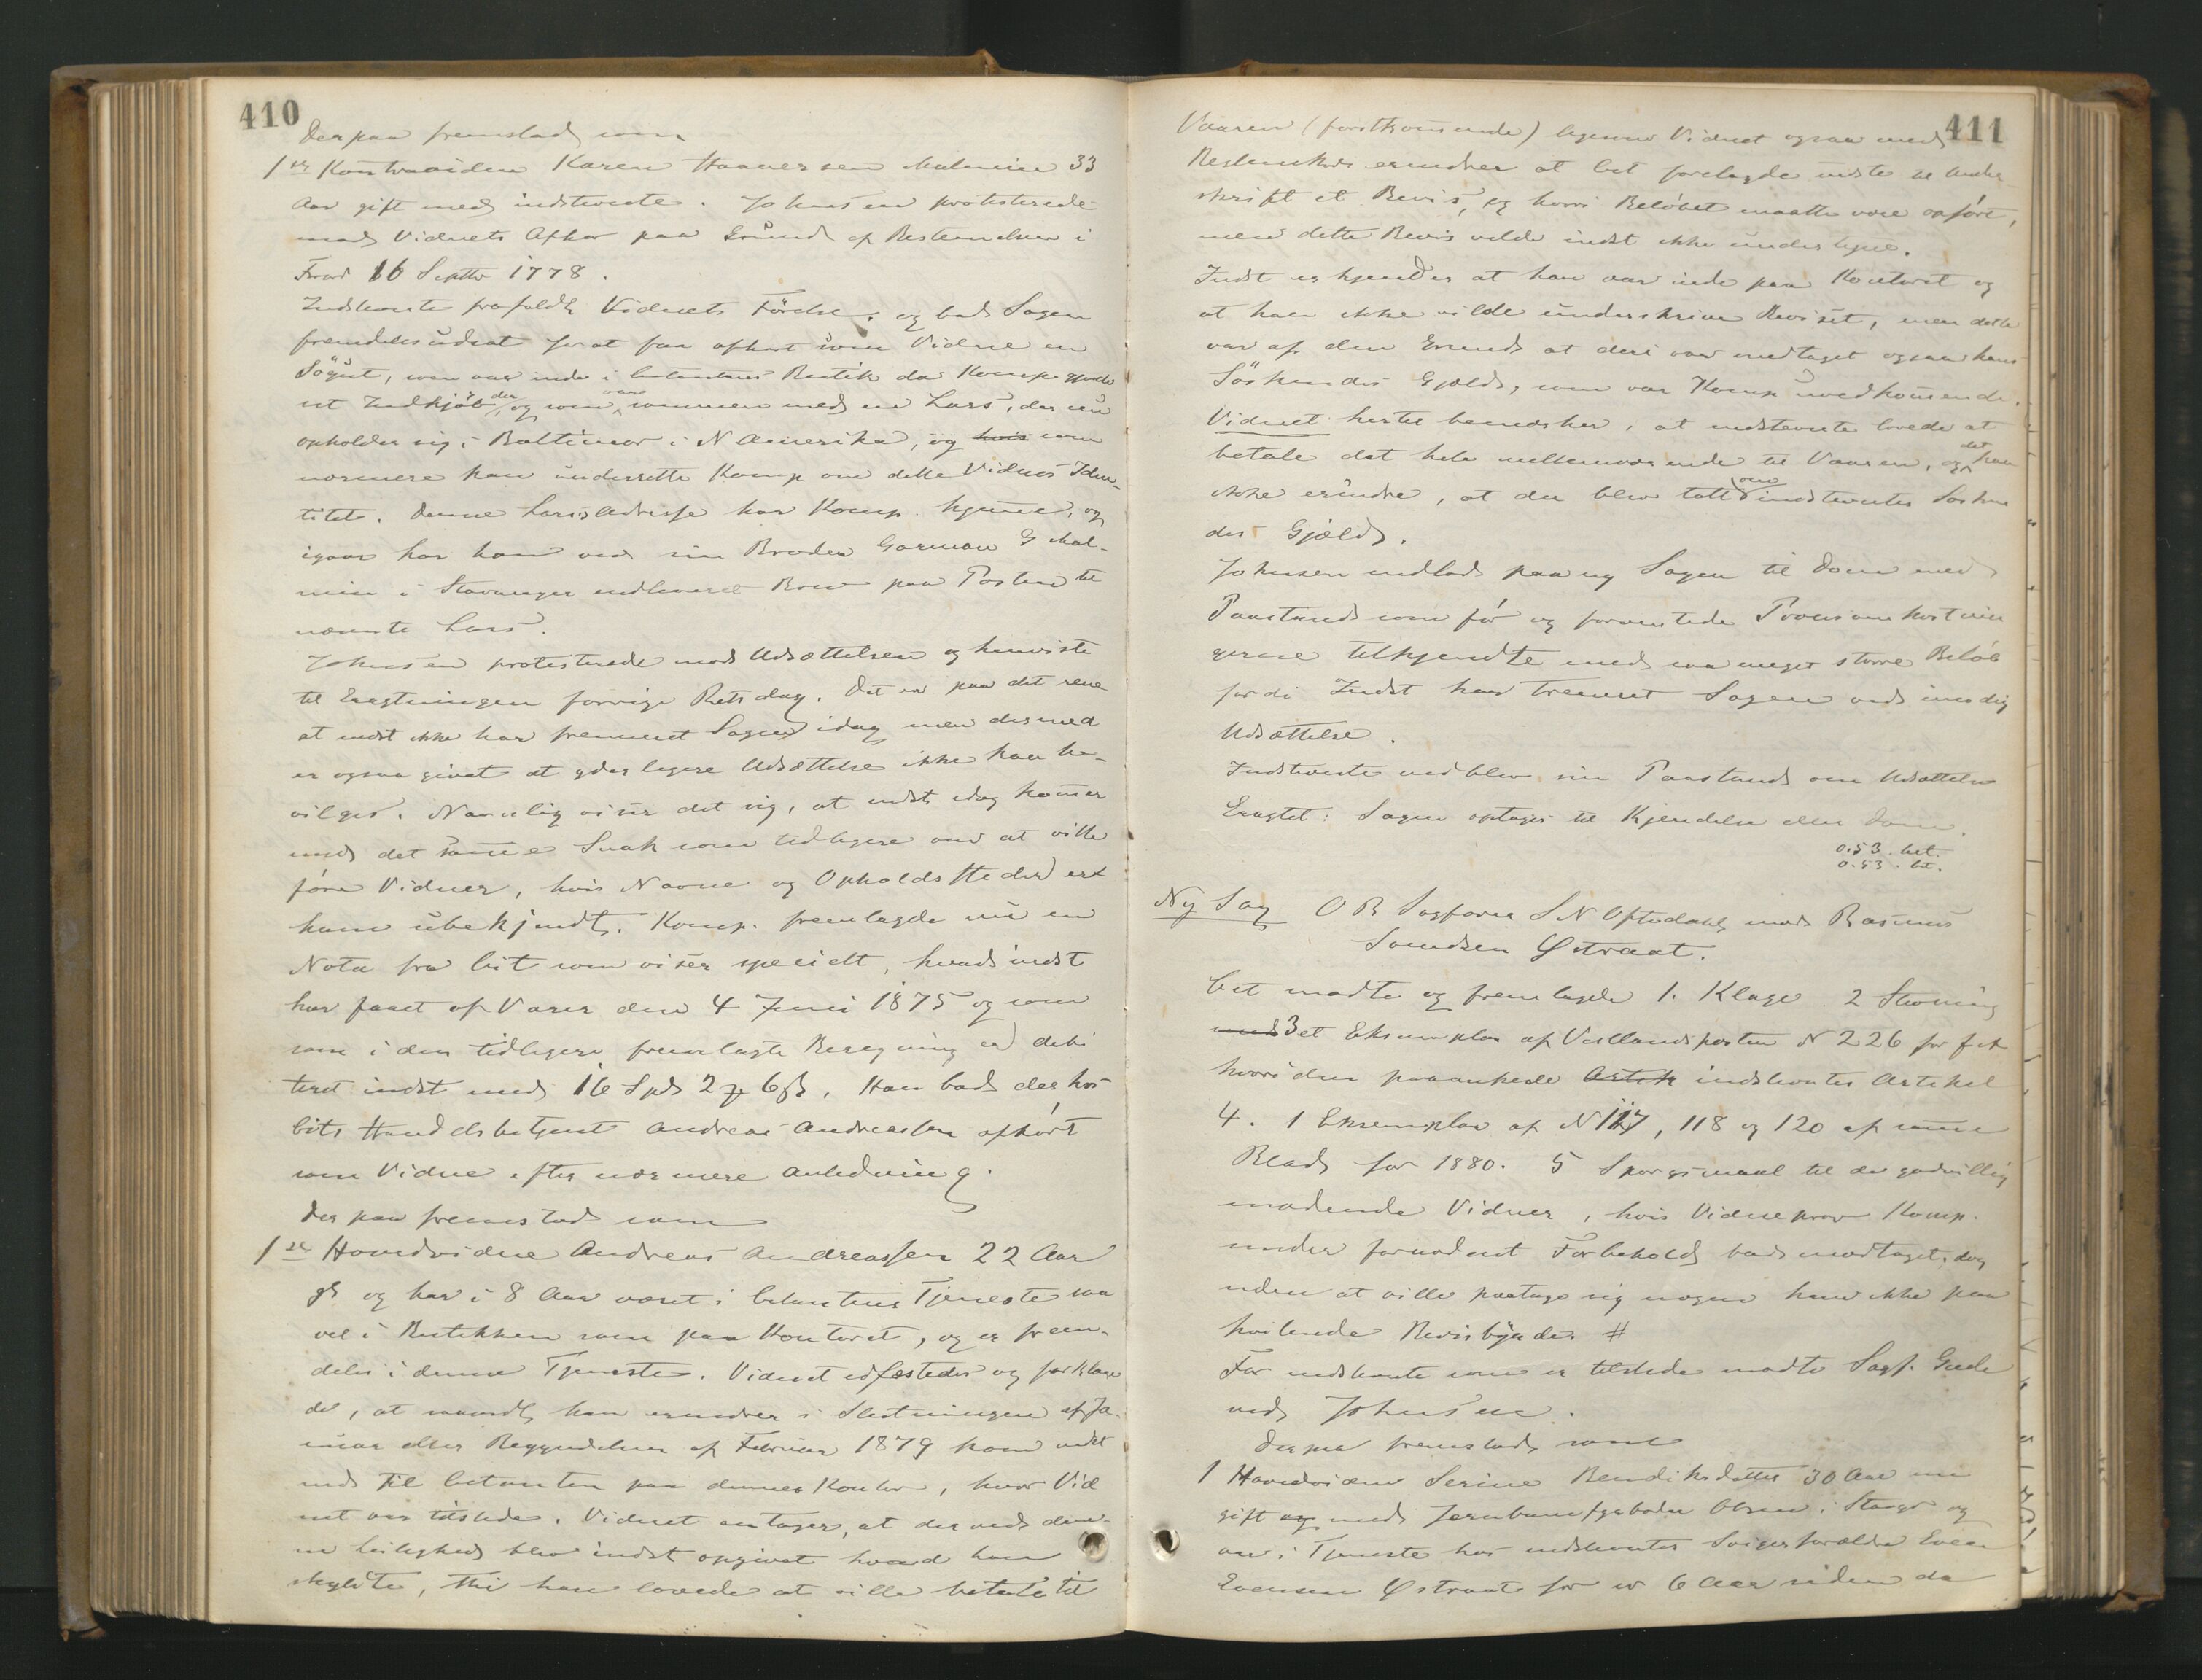 410
Derpaa fremstod som
1ste Kontravidne Karen Haaversen Malmine 33
Aar gift med indstevnte. Johnsen protesterede
mod Vidnets Afhør paa Grund af Bestemmelsen i
Frord 16 Septbr 1778.
Indstevnte frafaldt Vidnets Førelse, og bad Sagen
fremdeles udsat for at faa afhørt som Vidne en
Søgut, som var inde i citantens Butik da Komp gjorde
sit Indkjøb der, og som var sammen med en Lars, der nu
opholder sig i Baltimor i N Amerika, og hvis som
nærmere kan underrette Komp om dette Vidnes Iden-
titet. Denne Lars's Adresse har Komp. hjemme, og
igaar har han ved sin Broder Garman G Mal-
min i Stavanger indleveret Brev paa Posten til
nævnte Lars.
Johnsen protesterede mod Udsættelsen og henviste
til Eragtningen forrige Retsdag. Det er paa det rene
at indst ikke har fremmet Sagen idag men dermed
er ogsaa givet at yderligere Udsættelse ikke kan be-
vilges. Navnlig viser det sig, at indst idag kommer
med det samme Snak som tidligere om at ville
føre Vidner, hvis Navne og Opholdssteder er
ham ubekjendt. Komp. fremlagde nu en
Nota fra Cit som viser specielt, hvad indst
har faaet af Varer den 4 Juni 1875 og som
som i den tidligere fremlagte Regning er debi
teret indst med 16 Spd 2 # 6 ß. Han bad derhos
Cits Handelsbetjent Andreas Andreassen afhørt
som Vidne efter nærmere Anledning.
Derpaa fremstod som
1ste Hovedvidne Andreas Andreassen 22 Aar
gl og har i 8 Aar været i Citantens Tjeneste saa
vel i Butikken som paa Kontoret, og er frem-
deles i denne Tjeneste. Vidnet edfæstedes og forklare
de, at saavidt han erindrer i Slutningen af Ja-
nuar eller Begyndelsen af Februar 1879 kom indst
ind til Citanten paa dennes Kontor, hvor Vid
net var tilstede. Vidnet antager, at der ved den-
ne Leilighed blev indst opgivet hvad han
skyldte, thi han lovede at ville betale til
411
Vaaren (førstkommende) ligesom Vidnet ogsaa med
Bestemthed erindrer at Cit forelagde indste til Under
skrift et Bevis, og hvori Beløbet maatte være opført,
men dette Bevis vilde indst ikke undertegne.
Indst erkjender at han var inde paa Kontoret og
at han ikke vilde underskrive Beviset, men dette
var af den Grund at deri var medtaget ogsaa hans
Søskendes Gjæld, som var Komp uvedkommende.
Vidnet hertil bemærker, at indstevnte lovede at
betale det hele mellemværende til Vaaren, og det han
ikke erindre, at der blev talt om indstevntes Søsken
des Gjæld.
Johnsen indlod paany Sagen til Dom med
Paastand som før og forventede Procesomkostnin
gerne tilkjendte med saa meget større Beløb
fordi Indst har trenneret Sagen ved unødig
Udsættelse.
Indstevnte vedblev sin Paastand om Udsættelse
Eragtet: Sagen optages til Kjendelse eller Dom.
0.53. bet.
0.53. bet.
Ny Sag O R Sagfører S N Oftedahl mod Rasmus
Svendsen Østraat.
Cit mødte og fremlagde 1. Klage 2 Stevning
med 3 et Eksemplar af Vestlandsposten N 226 for f A
hvori den paaankede Artik indstevntes Artikel
4. 1 Eksemplar af N 117, 118 og 120 af samme
Blad for 1880. 5 Spørgsmaal til de godvillig
mødende Vidner, hvis Vidneprov Komp.
under fornødent Forbehold bad modtaget, dog
uden at ville paatage sig nogen ham ikke paa
hvilende Bevisbyrder #
For indstevnte som er tilstede mødte Sagf. Gude
ved Johnsen.
Derpaa fremstod som
1 Hovedvidne Serine Bendiksdatter 30 Aar nu
gift og med Jernbanearbeider Olsen i Stavgr og
var i Tjeneste hos indstevntes Svigerforældre Even
Evensen Østraat for ca 6 Aar siden da